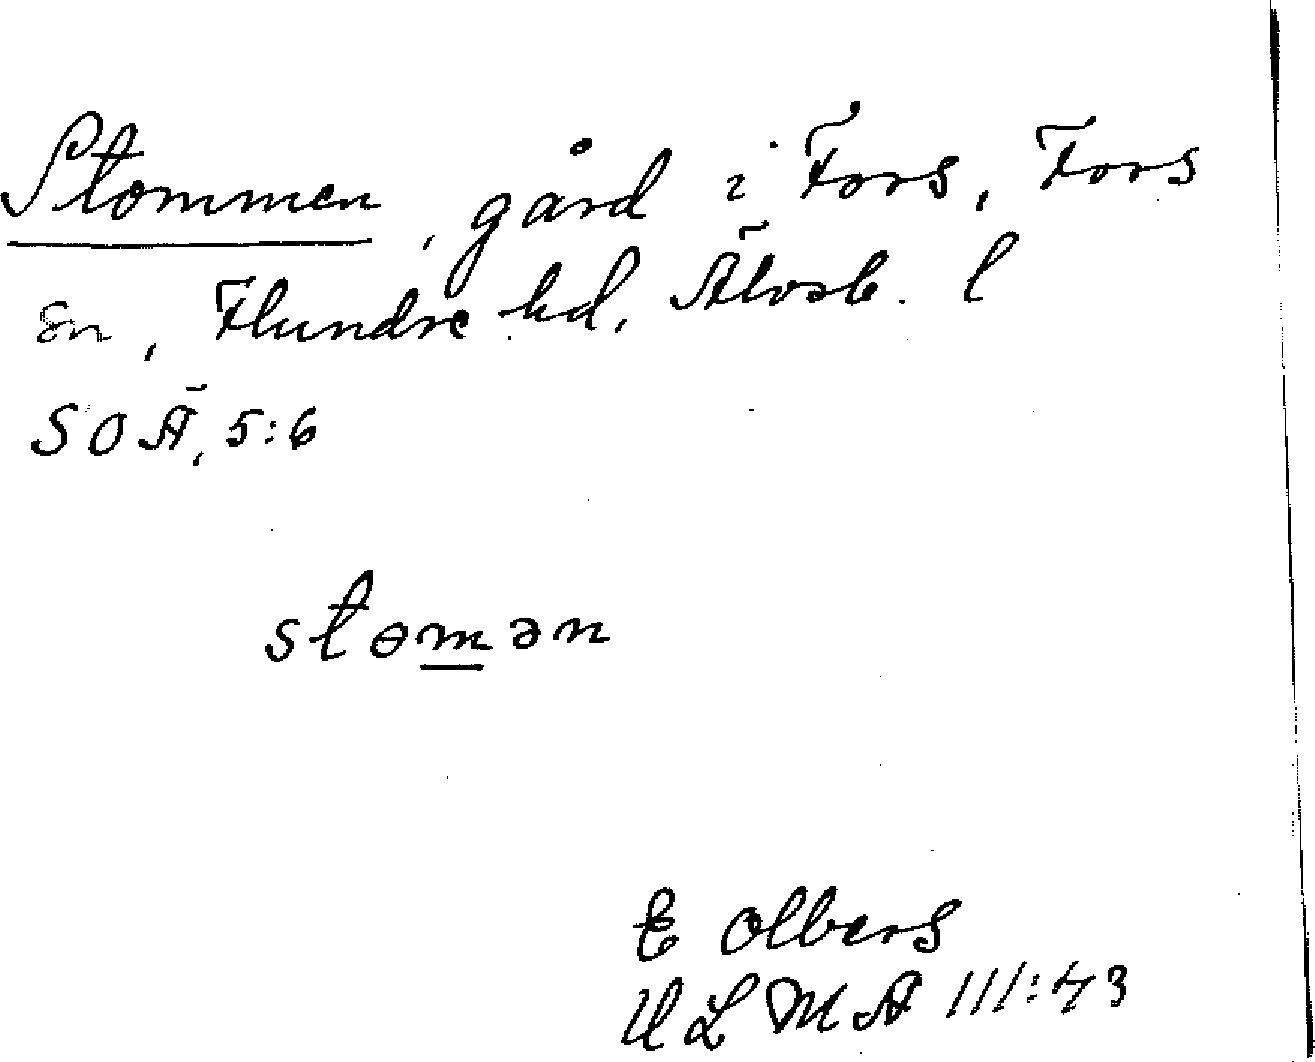 Stommen, gård i Fors, Fors
sn, Flundre hd, Älvsb. l
SOÄ, 5:6
stɵmən
E Olbers
ULMA 111:43